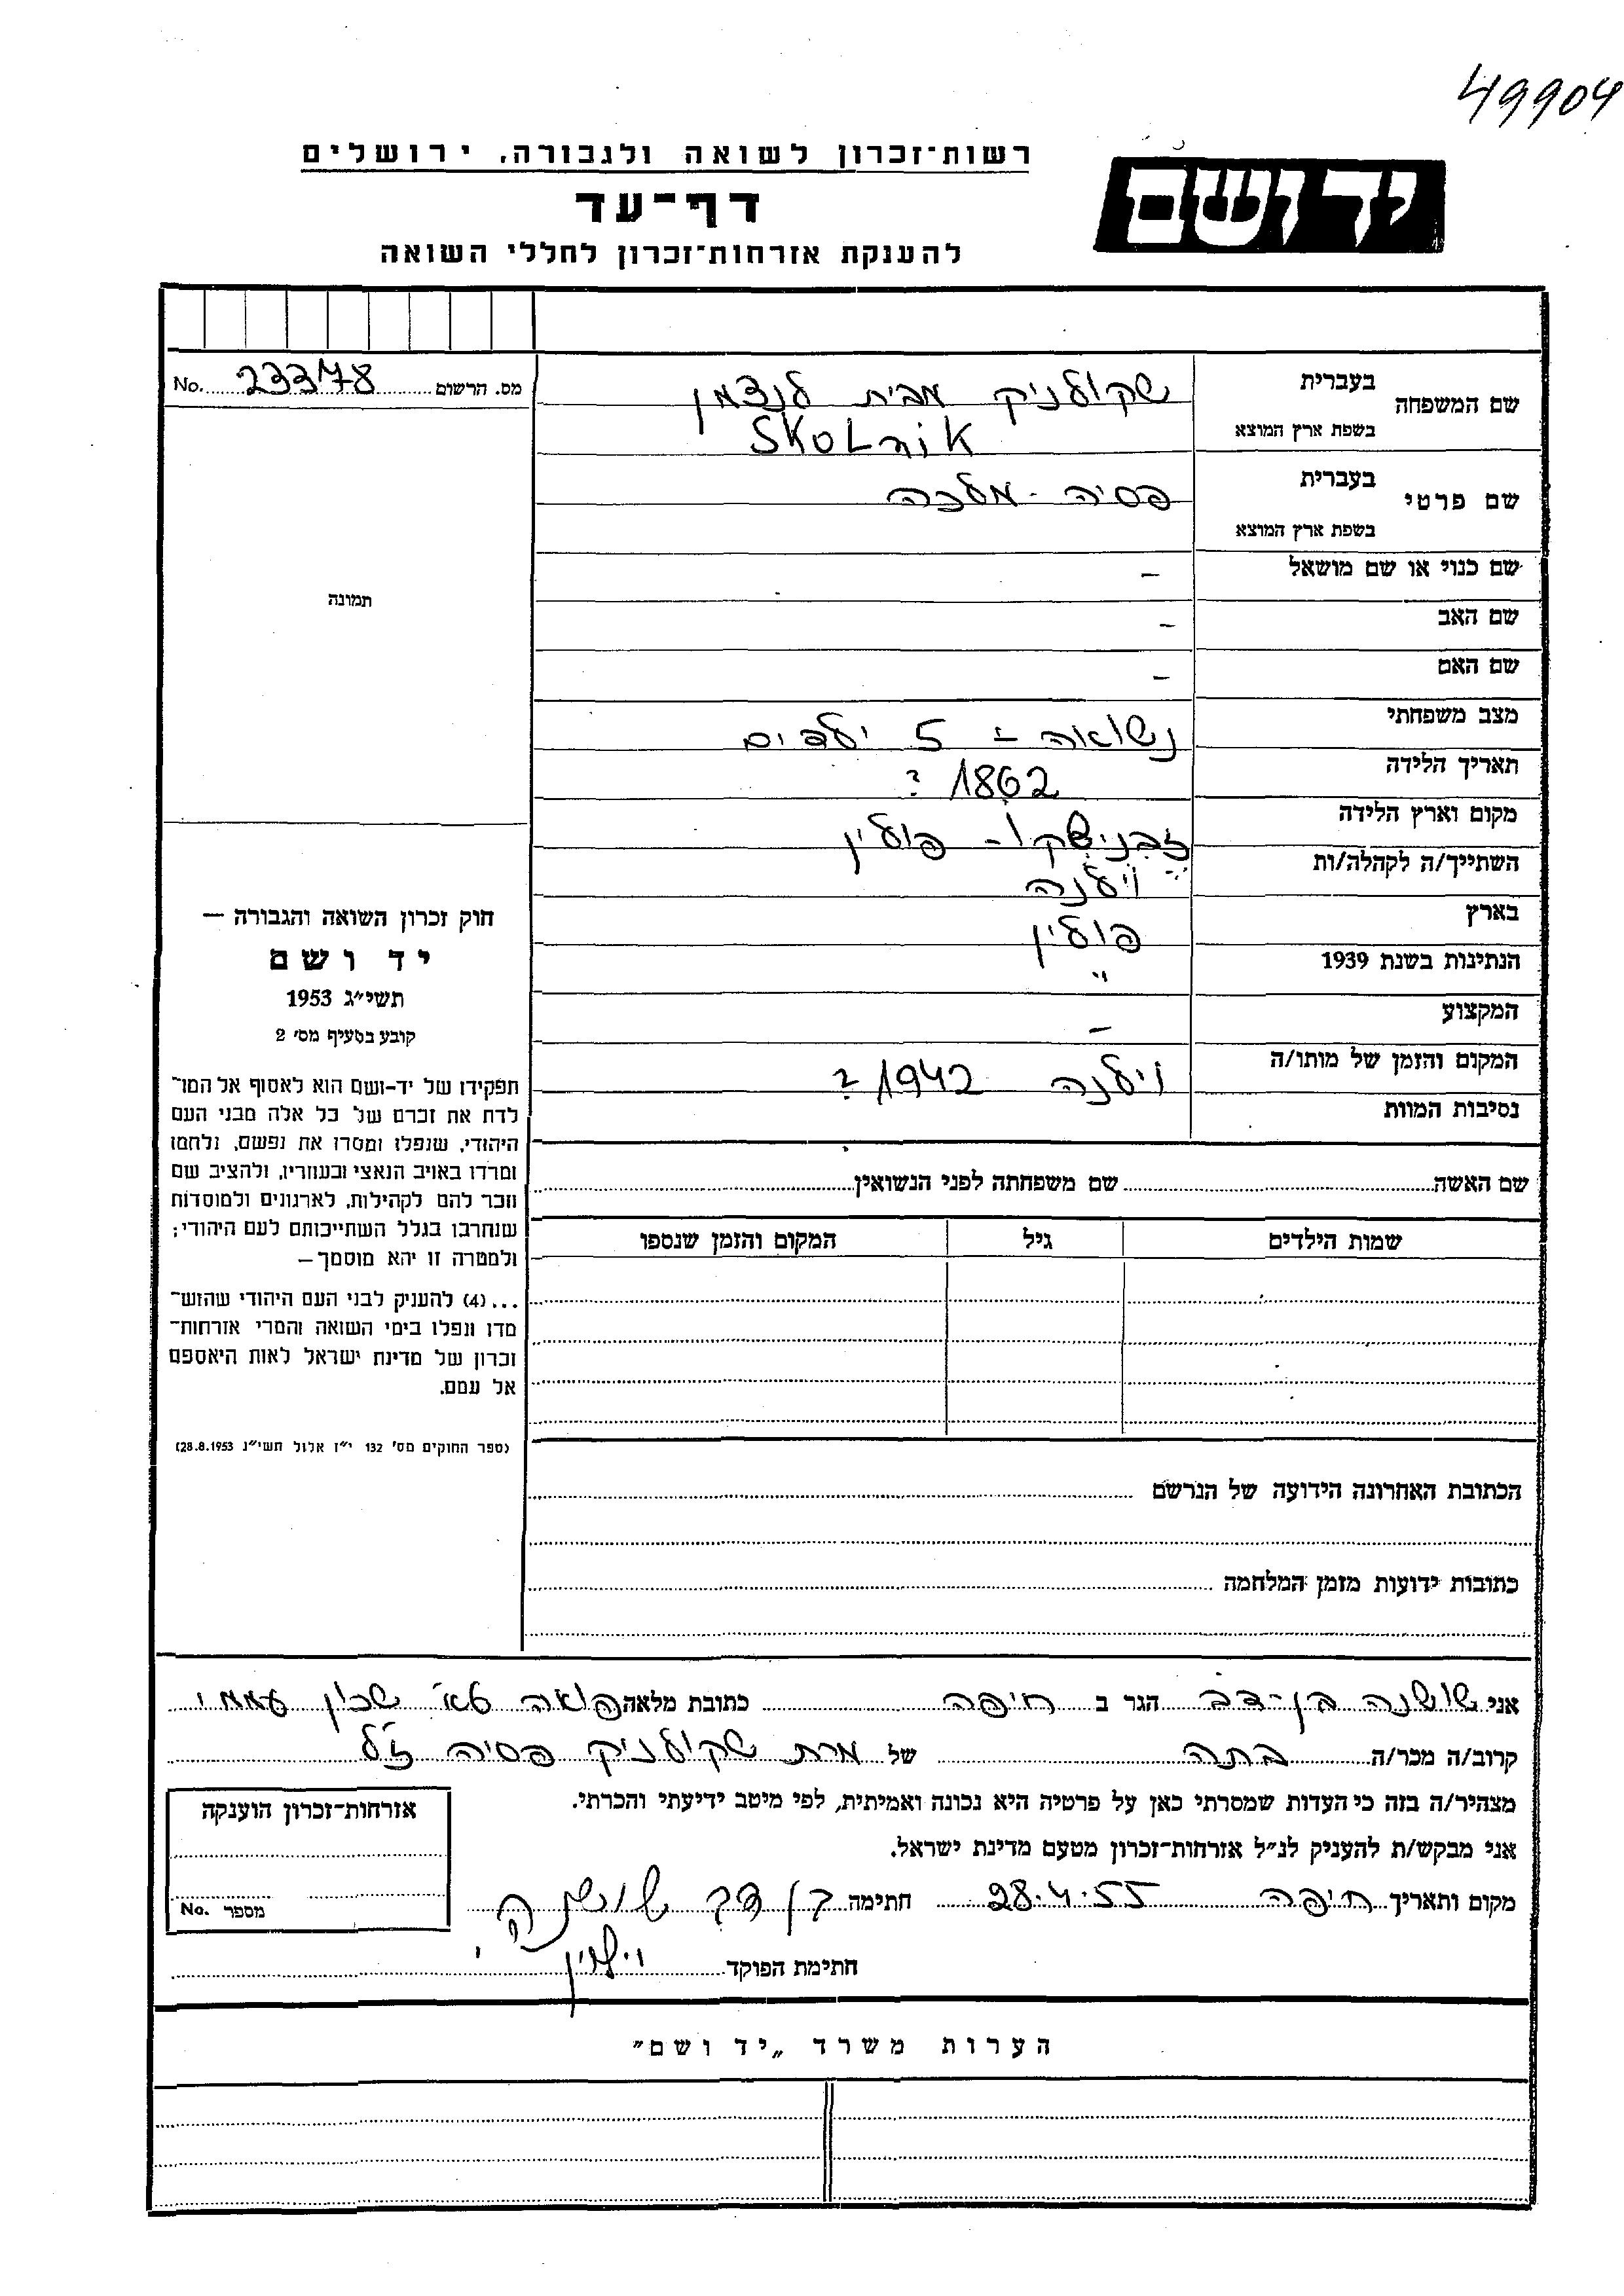 49904
רשות־זכרון לשואה ולגבורה, ירושלים
יד ושם
דף־עד
להענקת אזרחות־זכרון לחללי השואה
מס. הרשום 23378 No.
שם המשפחה
בעברית שקולניק מבית לנצמן
בשפת ארץ המוצא SKOLnIK
שם פרטי
בעברית פסיה - מלכה
בשפת ארץ המוצא
שם כנוי או שם מושאל –
שם האב –
שם האם –
מצב משפחתי נשואה – 5 ילדים
תאריך הלידה 1862 ?
מקום וארץ הלידה – פולין
השתייך/ה לקהלה/ות וילנה
בארץ פולין
הנתינות בשנת 1939 "
המקצוע –
המקום והזמן של מותו/ה וילנה 1942 ?
נסיבות המוות
שם האשה שם משפחתה לפני הנשואין
שמות הילדים גיל המקום והזמן שנספו
הכתובת האחרונה הידועה של הנרשם
כתובות ידועות מזמן המלחמה
תמונה
חוק זכרון השואה והגבורה –
יד ושם
תשי״ג 1953
קובע בסעיף מס׳ 2
תפקידו של יד-ושם הוא לאסוף אל המו־
לדת את זכרם של כל אלה מבני העם
היהודי, שנפלו ומסרו את נפשם, נלחמו
ומרדו באויב הנאצי ובעוזריו, ולהציב שם
וזכר להם לקהילות, לארגונים ולמוסדות
שנחרבו בגלל השתייכותם לעם היהודי;
ולמטרה זו יהא מוסמך –
...(4) להעניק לבני העם היהודי שהוש־
מדו ונפלו בימי השואה והמרי אזרחות־
זכרון של מדינת ישראל לאות היאספם
אל עמם.
(ספר החוקים מס׳ 132 י״ז אלול תשי״ג 28.8.1953)
אני שושנה בן-דב הגר ב חיפה כתובת מלאה שכון עממי
קרוב/ה מכר/ה בתה של מרת שקולניק פסיה ז"ל
מצהיר/ה בזה כי העדות שמסרתי כאן על פרטיה היא נכונה ואמיתית, לפי מיטב ידיעתי והכרתי.
אני מבקש/ת להעניק לנ״ל אזרחות־זכרון מטעם מדינת ישראל.
מקום ותאריך חיפה 28.4.55 חתימה בן דב שושנה
חתימת הפוקד
אזרחות־זכרון הוענקה
מספר No.
הערות משרד „יד ושם״